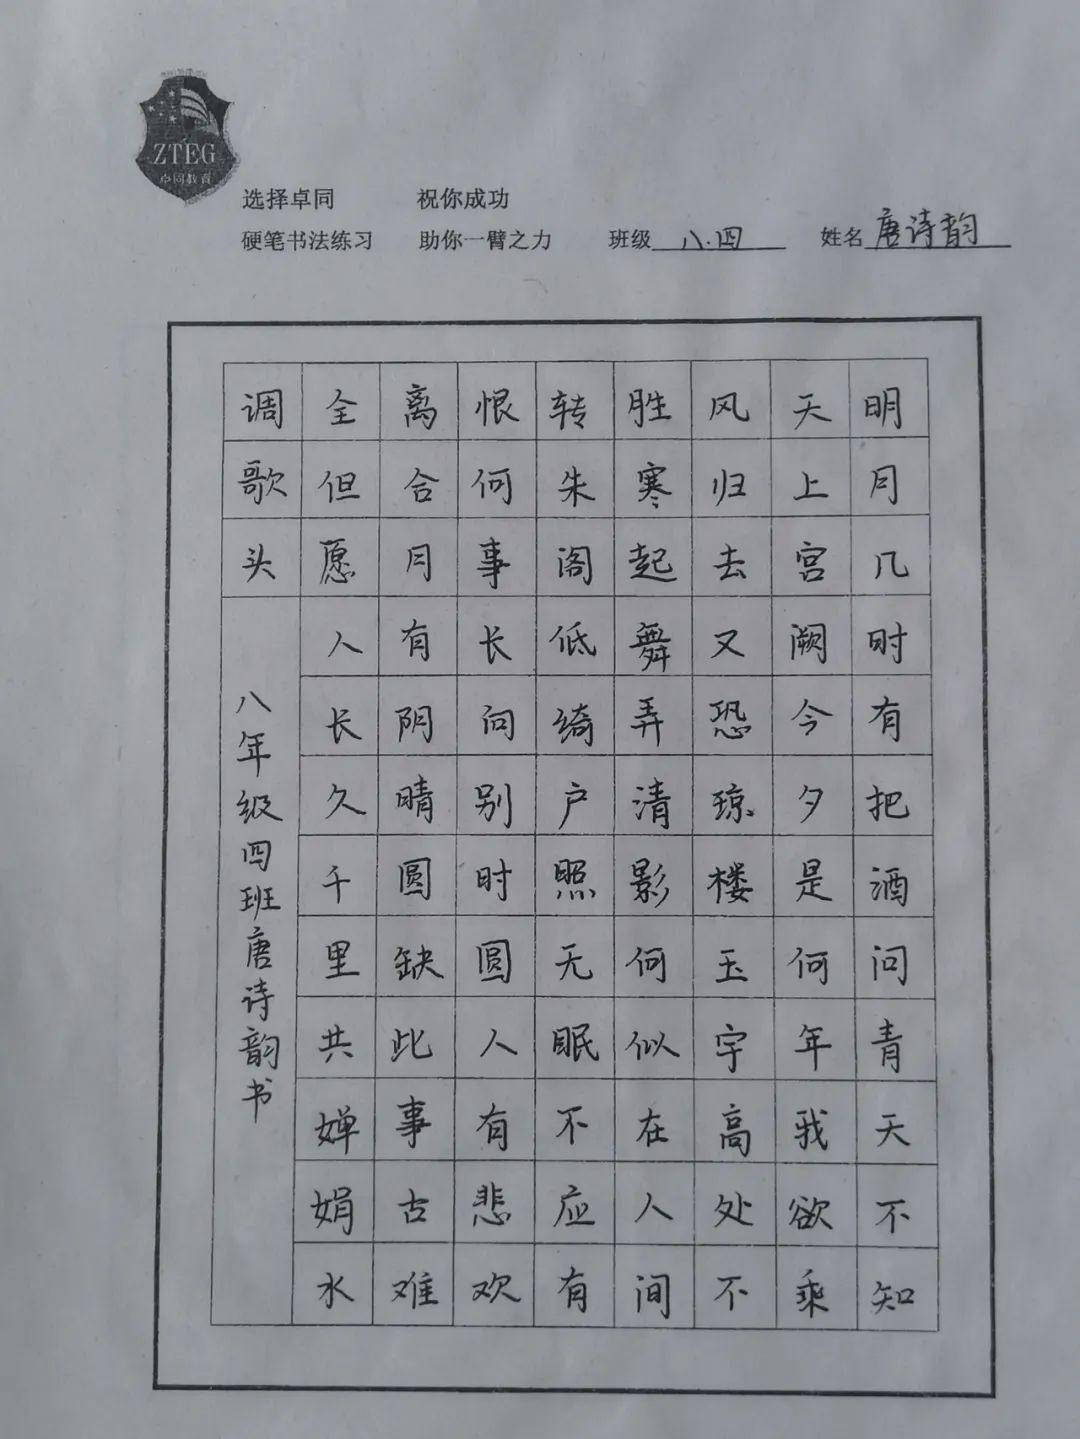 ZTEG
卓同教育
选择卓同 祝你成功
硬笔书法练习 助你一臂之力 班级 八.四 姓名 唐诗韵
明月几时有把酒问青天不知
天上宫阙今夕是何年我欲乘
风归去又恐琼楼玉宇高处不
胜寒起舞弄清影何似在人间
转朱阁低绮户照无眠不应有
恨何事长向别时圆人有悲欢
离合月有阴晴圆缺此事古难
全但愿人长久千里共婵娟水
调歌头
八年级四班唐诗韵书